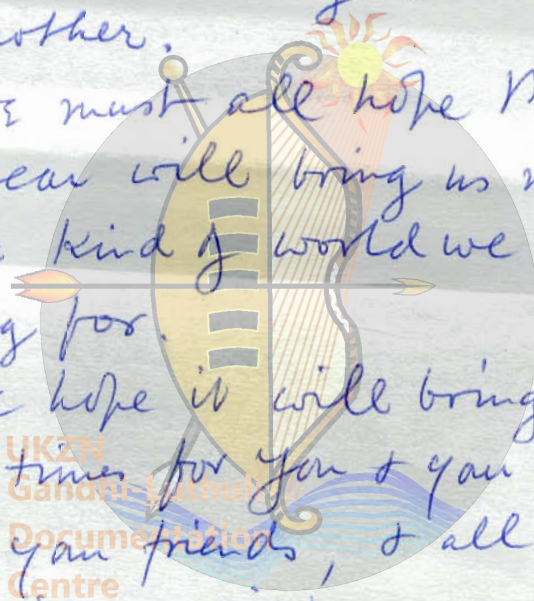 nother.
must all hope
ear will bring us
kind of world we
g for.
hope it will bring
times for you & you
you friends, & all
UKZN
Gandhi-Luthuli
Documentation
Centre